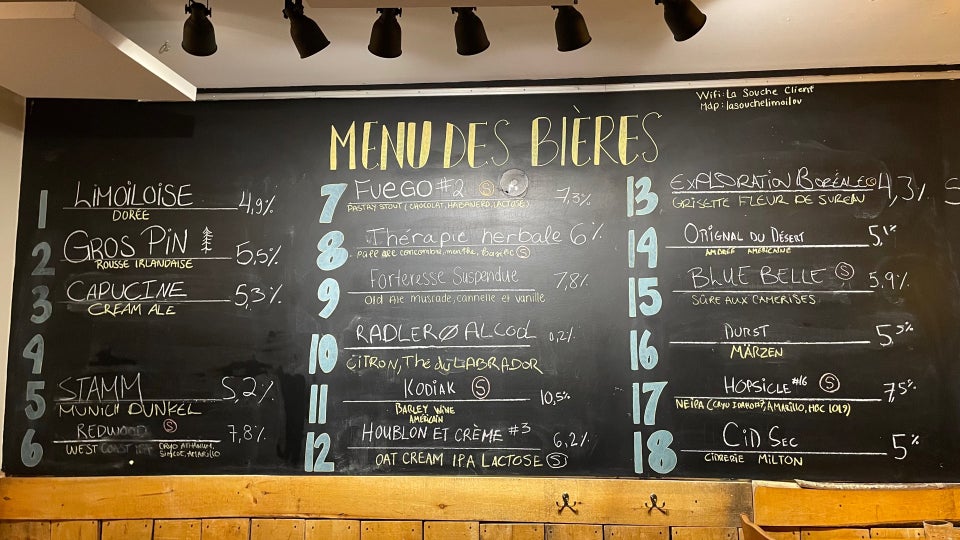 Wifi: La Souche Client
Mdp: lasouchelimoilou
MENU DES BIÈRES
1 LIMOILOISE 4,9%
DORÉE
2 GROS PIN 5,5%
ROUSSE IRLANDAISE
3 CAPUCINE 5,3%
CREAM ALE
4
5 STAMM 5,2%
MUNICH DUNKEL
6 REDWOOD Ⓢ 7,8%
WEST COAST IPA CRYO
SIMCOE, AMARILLO
7 FUEGO #2 Ⓢ 7,3%
PASTRY STOUT (CHOCOLAT, HABANERO, LACTOSE)
8 Thérapie herbale 6%
PALE ALE concombre, menthe, basilic Ⓢ
9 Forteresse Suspendue 7,8%
Old Ale muscade, cannelle et vanille
10 RADLER Ø ALCOOL 0,2%
CITRON, Thé du LABRADOR
11 KODIAK Ⓢ 10,5%
BARLEY WINE
AMÉRICAIN
12 HOUBLON ET CRÈME #3 6,2%
OAT CREAM IPA LACTOSE Ⓢ
13 EXPLORATION BORÉALE Ⓢ 4,3%
GRISETTE FLEUR DE SUREAU
14 ORIGNAL DU DÉSERT 5,1%
AMBRÉE AMÉRICAINE
15 BLUE BELLE Ⓢ 5.9%
SÛRE AUX CAMERISES
16 DURST 5,5%
MÄRZEN
17 HOPSICLE #16 Ⓢ 7,5%
NEIPA (CRYO IDAHO #7, AMARILLO, HBC 1019)
18 CID SEC 5%
CIDRERIE MILTON